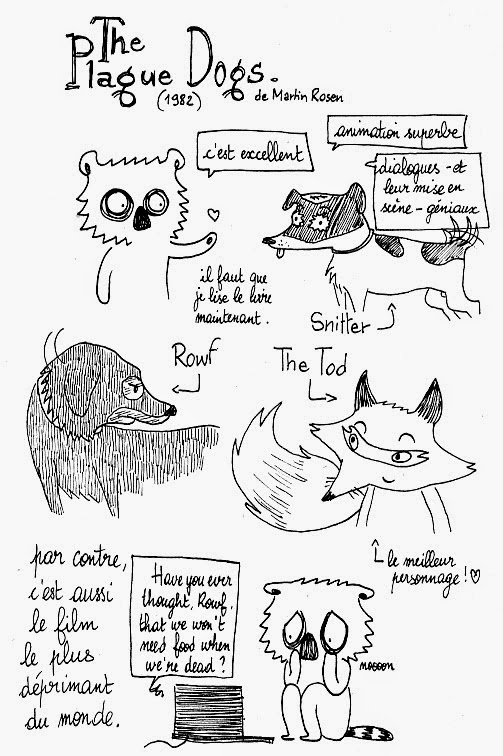 The
Plague Dogs.
(1982) de Martin Rosen
c'est excellent
animation superbe
dialogues - et
leur mise en
scène - géniaux
il faut que
je lise le livre
maintenant.
Snitter
Rowf
The Tod
le meilleur
personnage ! ♡
par contre,
c'est aussi
le film
le plus
déprimant
du monde.
Have you ever
thought, Rowf,
that we won't
need food when
we're dead ?
noooon